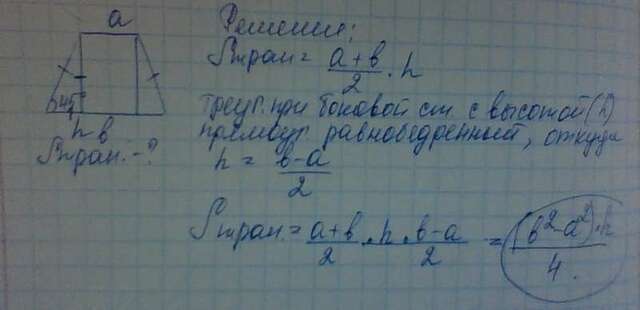 a
45°
h
в
Sтрап. - ?
Решение:
Sтрап = a+в/2 · h
треуг. при боковой ст. с высотой (h)
прямоуг. равнобедренный, откуда
h = в-a/2
Sтрап. = a+в/2 · h · в-a/2 = (в²-a²)·h/4.